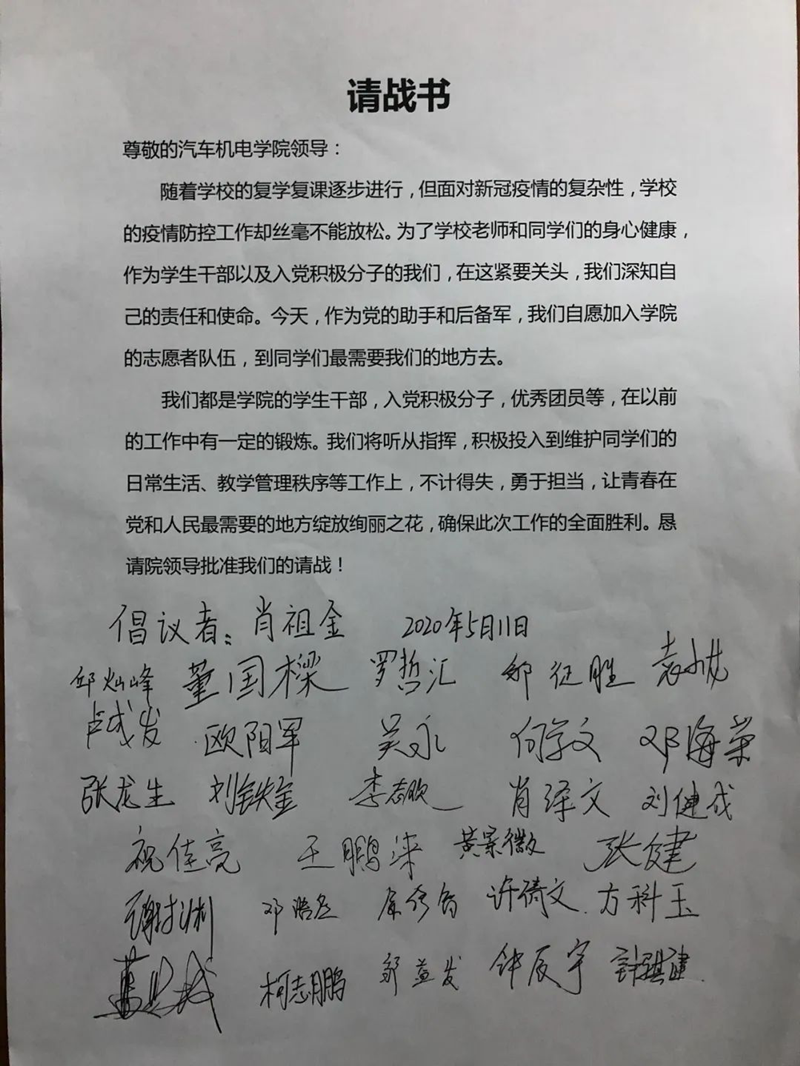 请战书
尊敬的汽车机电学院领导：
随着学校的复学复课逐步进行，但面对新冠疫情的复杂性，学校
的疫情防控工作却丝毫不能放松。为了学校老师和同学们的身心健康，
作为学生干部以及入党积极分子的我们，在这紧要关头，我们深知自
己的责任和使命。今天，作为党的助手和后备军，我们自愿加入学院
的志愿者队伍，到同学们最需要我们的地方去。
我们都是学院的学生干部，入党积极分子，优秀团员等，在以前
的工作中有一定的锻炼。我们将听从指挥，积极投入到维护同学们的
日常生活、教学管理秩序等工作上，不计得失，勇于担当，让青春在
党和人民最需要的地方绽放绚丽之花，确保此次工作的全面胜利。恳
请院领导批准我们的请战！
倡议者：肖祖金 2020年5月11日
邱灿峰 董国樑 罗哲汇 邹征胜
欧阳军 吴永 何学文 邓海荣
张龙生 刘铁金 李志欣 肖泽文 刘健成
祝佳亮 王鹏深 黄景徽 张健
许倚文 方科玉
柯志鹏 邹益发 钟辰宇